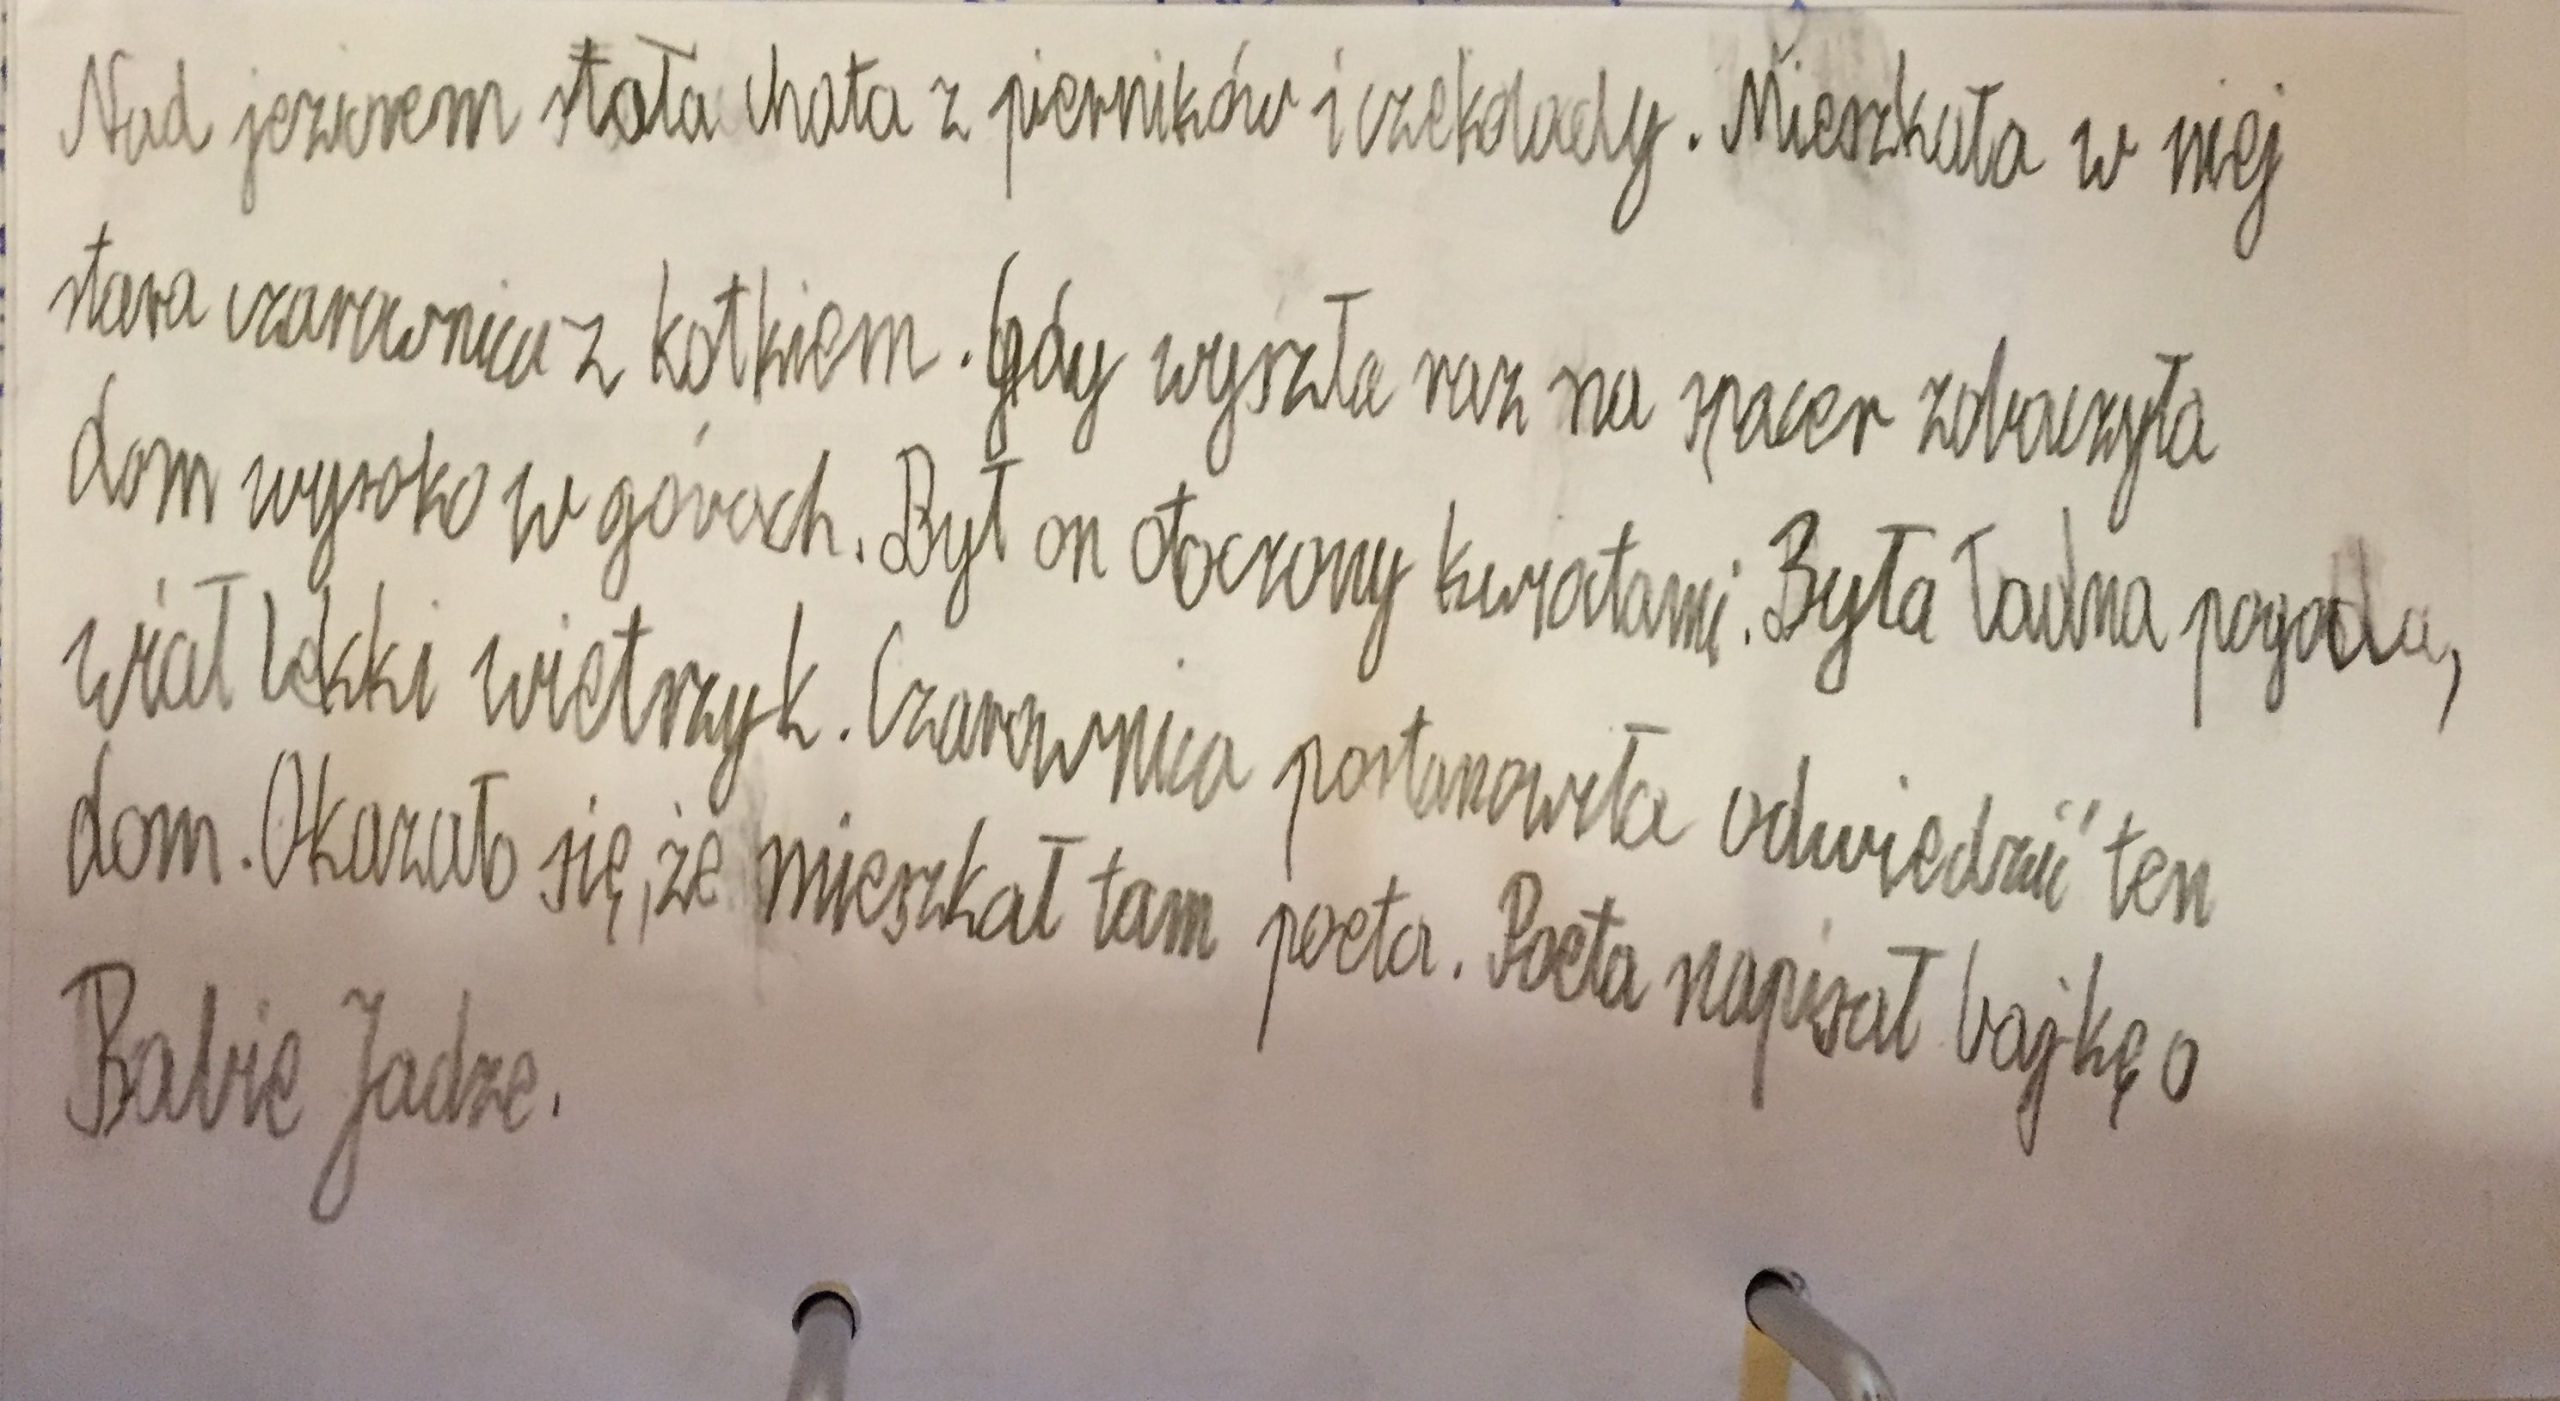 Nad jeziorem stała chata z pierników i czekolady. Mieszkała w niej
stara czarownica z kotkiem. Gdy wyszła raz na spacer zobaczyła
dom wysoko w górach. Był on otoczony kwiatami. Była ładna pogoda,
wiał lekki wietrzyk. Czarownica postanowiła odwiedzić ten
dom. Okazało się, że mieszkał tam poeta. Poeta napisał bajkę o
Babie Jadze.